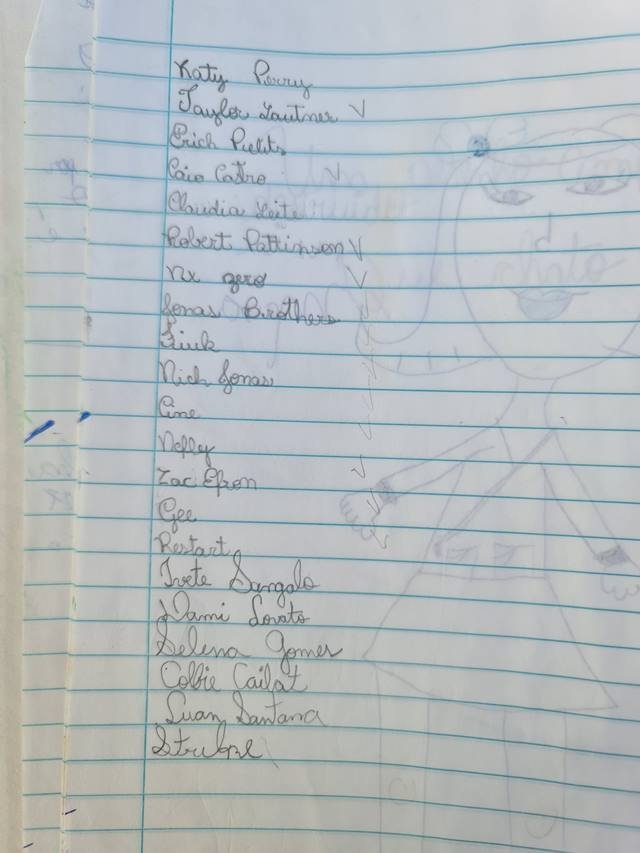 Katy Perry
Taylor Lautner V
Erich Pielits
Caio Castro V
Claudia Leite
Robert Pattinson V
Nx zero V
Jonas Brothers
Fiuk
Nich Jonas
Cine
Zac Efron
Gee
Restart
Ivete Sangalo
Dami Lovato
Selena Gomes
Colbie Cailat
Luan Santana